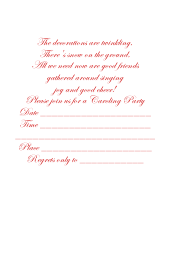 The decorations are twinkling.
There's snow on the ground.
All we need now are good friends
gathered around singing
joy and good cheer!
Please join us for a Caroling Party
Date
Time
Place
Regrets only to